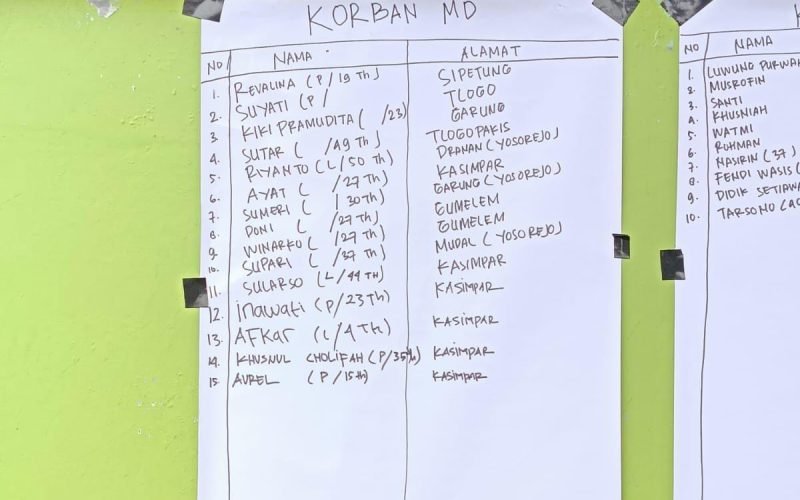 KORBAN MD
NO NAMA ALAMAT
1. REVALINA (P/19 Th) SIPETUNG
2. SUYATI (P/ TLOGO
3 KIKI PRAMUDITA ( /23) GARUNG
4. SUTAR ( /49 Th) TLOGOPAKIS
5. RIYANTO (L/50 Th) DRANAN (YOSOREJO)
6. AYAT ( /27 Th) KASIMPAR
7. SUMERI ( | 30Th) GARUNG (YOSOREJO)
8. DONI ( /27 Th) GUMELEM
9. WINARKO ( /27 Th) GUMELEM
10. SUPARI ( /37 Th) MUDAL (YOSOREJO)
11. SULARSO (L/44 TH) KASIMPAR
12. inawati (P/23 Th) KASIMPAR
13. AFKAR (L/4 Th) KASIMPAR
14. KHUSNUL CHOLIFAH (P/35 KASIMPAR
15 AUREL (P/15th) KASIMPAR
NO NAMA
1. LUWUNG PURWA
2. MUSROFIN
3. SANTI
4. KHUSNIAH
5. WATMI
6. ROHMAN
7. NASIRIN (37)
8. FENDI WASIS (
9. DIDIK SETIAWA
10. TARSONO (